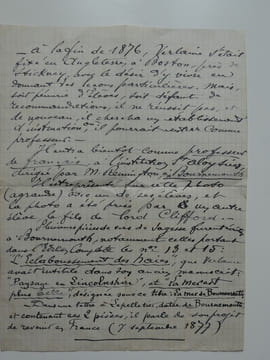 — A la fin de 1876, Verlaine s'était
fixé en Angleterre, à Boston, près de
Stickney, avec le désir d'y vivre en
donnant des leçons particulières. Mais,
soit pénurie d'élèves, soit défaut de
recommandations, il ne réussit pas, et
de nouveau, il chercha un établissement
d'instruction où il pourrait entrer comme
professeur. —
Il entra bientôt comme professeur
de français, à l'institution St Aloysius,
dirigée par M. Remington, à Bournemouth
cette photo
(agrandie) et
la photo a été prise par un autre
élève, le fils de lord Clifford. —
Plusieurs pièces de Sagesse furent écrites
à Bournemouth, notamment celles portant
dans l'Édit. Complète les nos 13 et 15:
"L'échelonnement des haies", que Verlaine
avait intitulé dans son ancien manuscrit:
"Paysage en Lincolnshire", et La mer est
plus belle, désignée sous ce titre: La mer de Bournemouth.
— Dans une lettre à Lepelletier, datée de Bournemouth
et contenant ces 2 pièces, il parle de son projet
de revenir en France (7 septembre 1877)